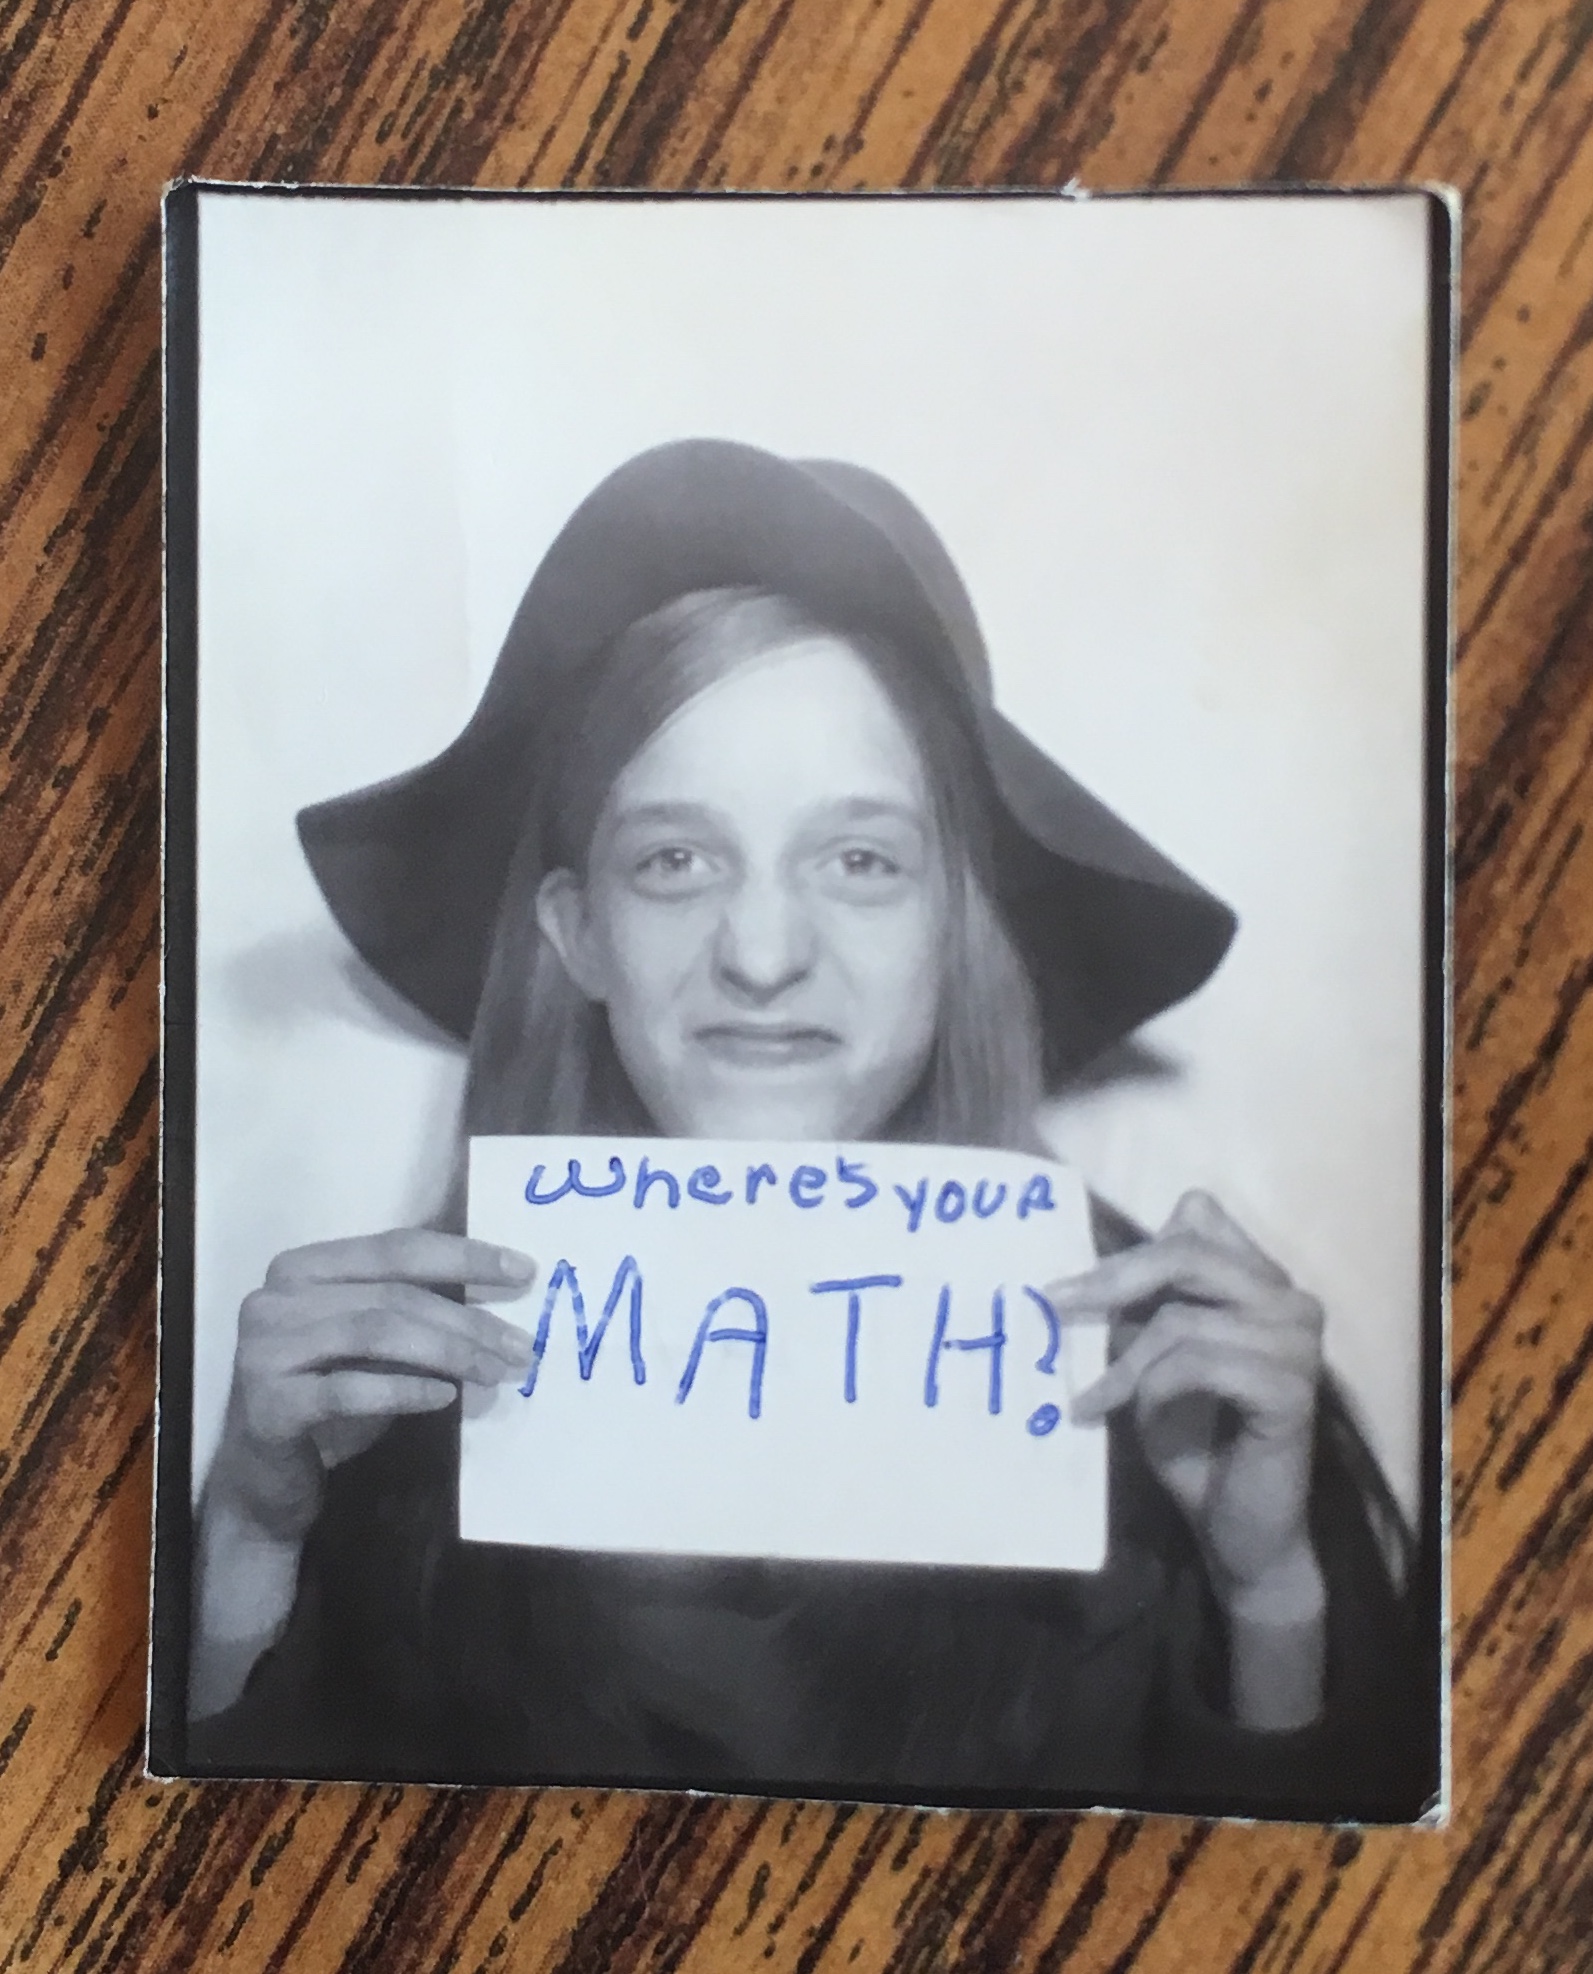 Where's your
MATH?